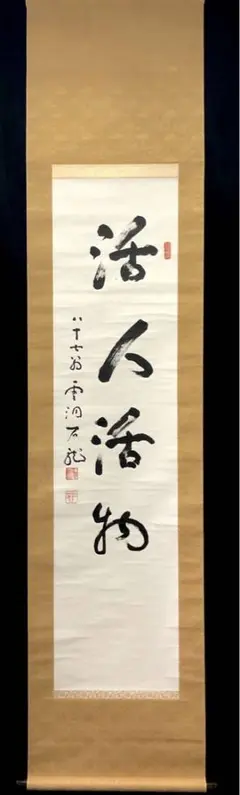 活人活物
八十七翁 雲洞石龍